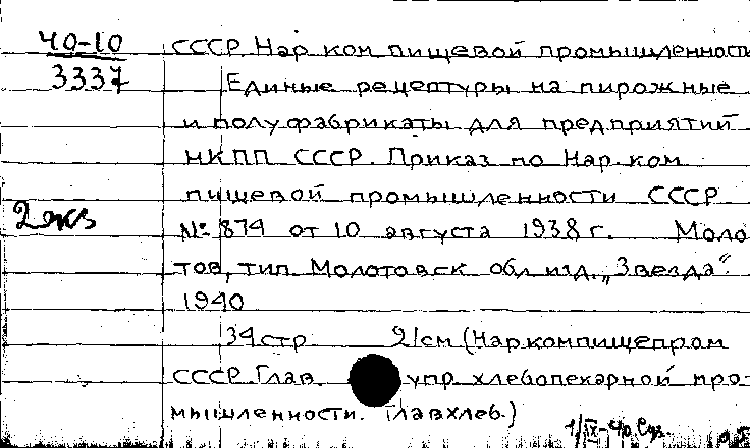 40-10
3337
СССР. Нар ком пищевой промышленности
Единые рецептуры на пирожные
и полуфабрикаты для предприятий
НКПП СССР. Приказ по Нар.ком
пищевой промышленности СССР
2 экз
№ 874 от 10 августа 1938 г. Моло
тов, тип. Молотовск обл изд. „Звезда“
1940
34 стр 21 см (Наркомпищепром
СССР. Глав. упр. хлебопекарной про
мышленности. Главхлеб.)
1/IX-40